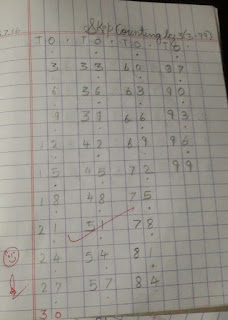 Skip Counting by 3(3-99)
T O T O T O T O
3 33 60 87
6 36 63 90
9 39 66 93
12 42 69 96
15 45 72 99
18 48 75
21 51 78
24 54 81
27 57 84
30